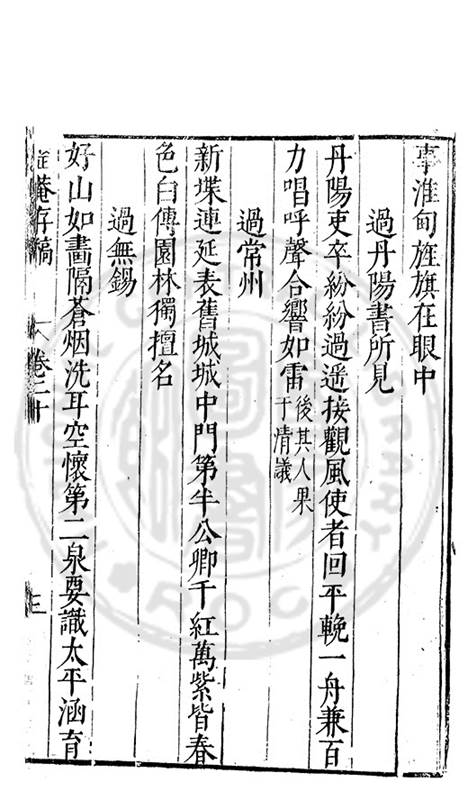 事淮甸旌旗在眼中
過丹陽書所見
丹陽吏卒紛紛過遥接觀風使者回平輓一舟兼百
力唱呼聲合響如雷後其人果于清議
過常州
新堞連延表舊城城中門第半公卿千紅萬紫皆春
色自傳園林獨擅名
過無錫
好山如畫隔蒼烟洗耳空懷第二泉要識太平涵育
菴存稿 卷二十 三